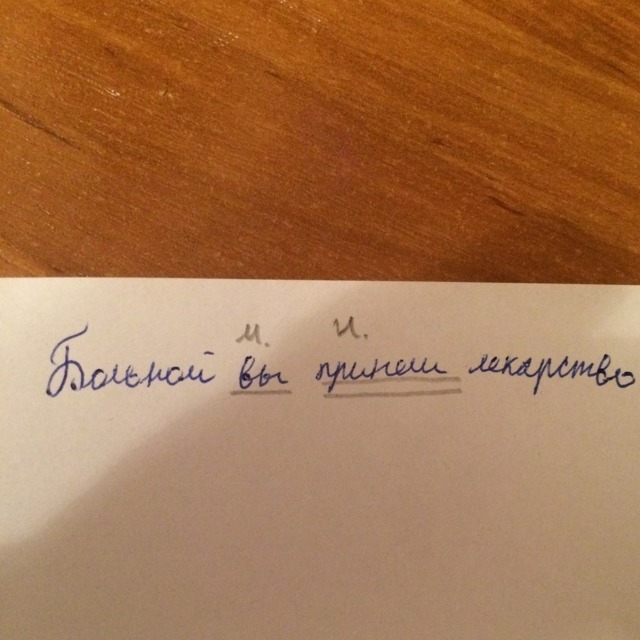 м. г.
Больной вы приняли лекарство